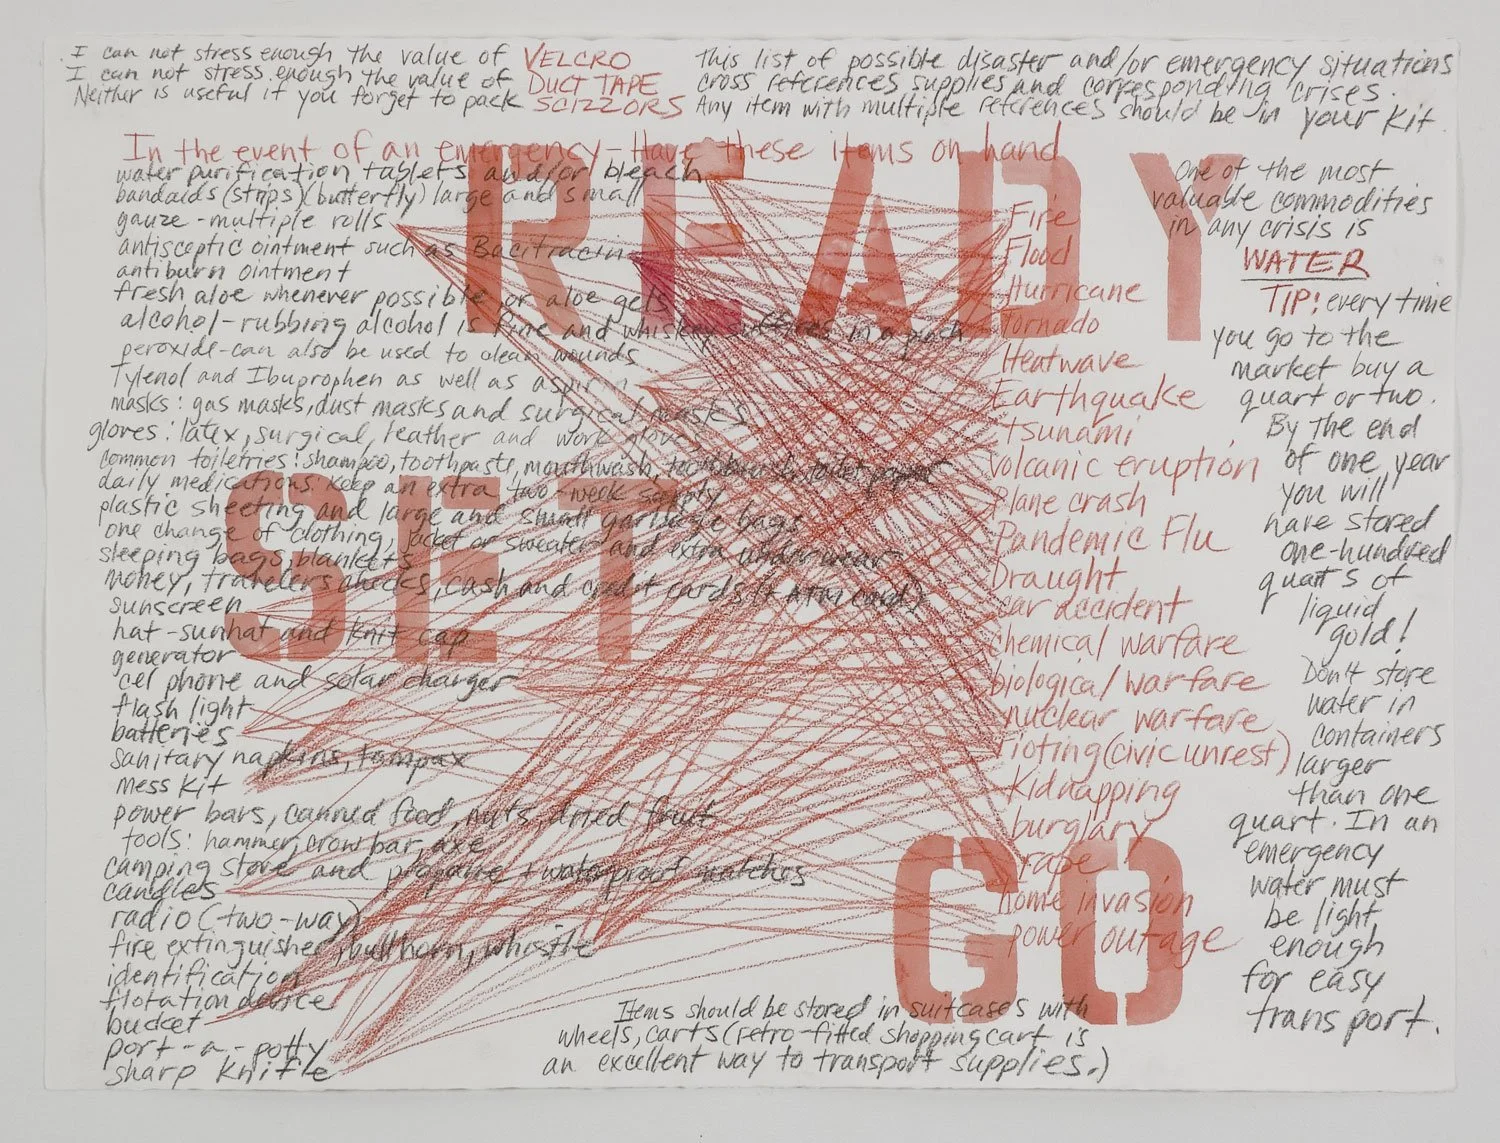 I can not stress enough the value of VELCRO
I can not stress enough the value of DUCT TAPE
Neither is useful if you forget to pack SCIZZORS
This list of possible disaster and/or emergency situations
cross references supplies and corresponding crises.
Any item with multiple references should be in your kit.
In the event of an emergency - Have these items on hand
READY
SET
GO
water purification tablets and/or bleach
bandaids (strips)(butterfly) large and small
gauze - multiple rolls
antisceptic ointment such as Bacitracin
antiburn ointment
fresh aloe whenever possible or aloe gels
alcohol - rubbing alcohol is fine and whiskey suffices in a pinch
peroxide - can also be used to clean wounds
Tylenol and Ibuprophen as well as aspirin
masks: gas masks, dust masks and surgical masks
gloves: latex, surgical, leather and work gloves
common toiletries: shampoo, toothpaste, mouthwash, toothbrush, toilet paper
daily medications: keep an extra two-week supply
plastic sheeting and large and small garbage bags
one change of clothing, jacket or sweater and extra underwear
sleeping bags, blankets
money, travelers checks, cash and credit cards (+ ATM card)
sunscreen
hat - sunhat and knit cap
generator
cel phone and solar charger
flash light
batteries
sanitary napkins, tampax
mess kit
power bars, canned food, nuts, dried fruit
tools: hammer, crow bar, axe
camping stove and propane + waterproof matches
candles
radio (two-way)
fire extinguisher, bullhorn, whistle
identification
flotation device
bucket
port-a-potty
sharp knife
Fire
Flood
Hurricane
Tornado
Heatwave
Earthquake
tsunami
volcanic eruption
Plane crash
Pandemic Flu
Draught
car accident
chemical warfare
biological warfare
nuclear warfare
rioting (civic unrest)
Kidnapping
burglary
rape
home invasion
power outage
One of the most
valuable commodities
in any crisis is
WATER
TIP! every time
you go to the
market buy a
quart or two.
By the end
of one year
you will
have stored
one-hundred
quarts of
liquid
gold!
Don't store
water in
containers
larger
than one
quart. In an
emergency
water must
be light
enough
for easy
transport.
Items should be stored in suitcases with
wheels, carts (retro-fitted shopping cart is
an excellent way to transport supplies.)